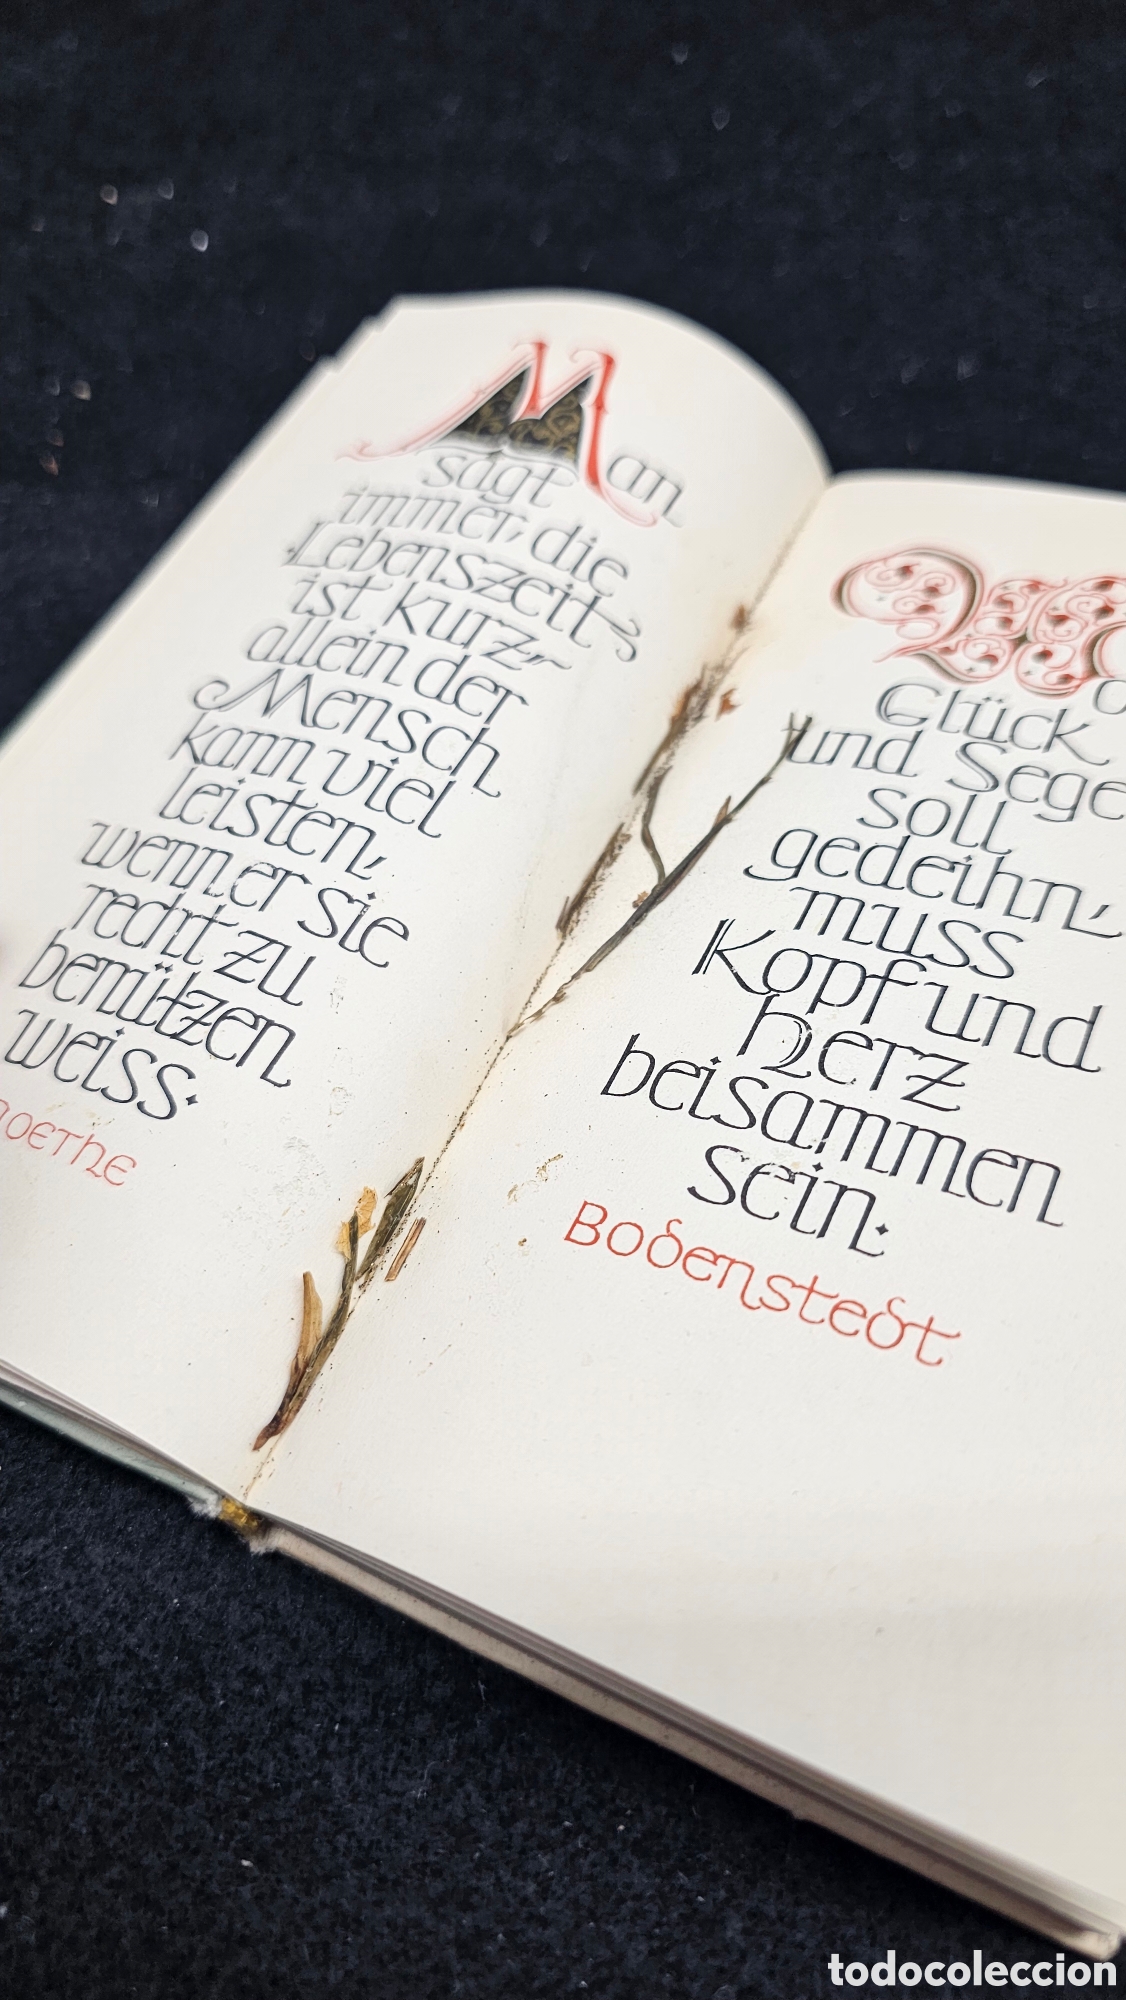 Man
sagt
immer, die
Lebenszeit
ist kurz„
allein der
Mensch
kann viel
leisten,
wenn er sie
recht zu
benützen
weiss.
Goethe
Wo
Glück
und Sege
soll
gedeihn,
muss
Kopf und
Herz
beisammen
sein.
Bodenstedt
todocoleccion